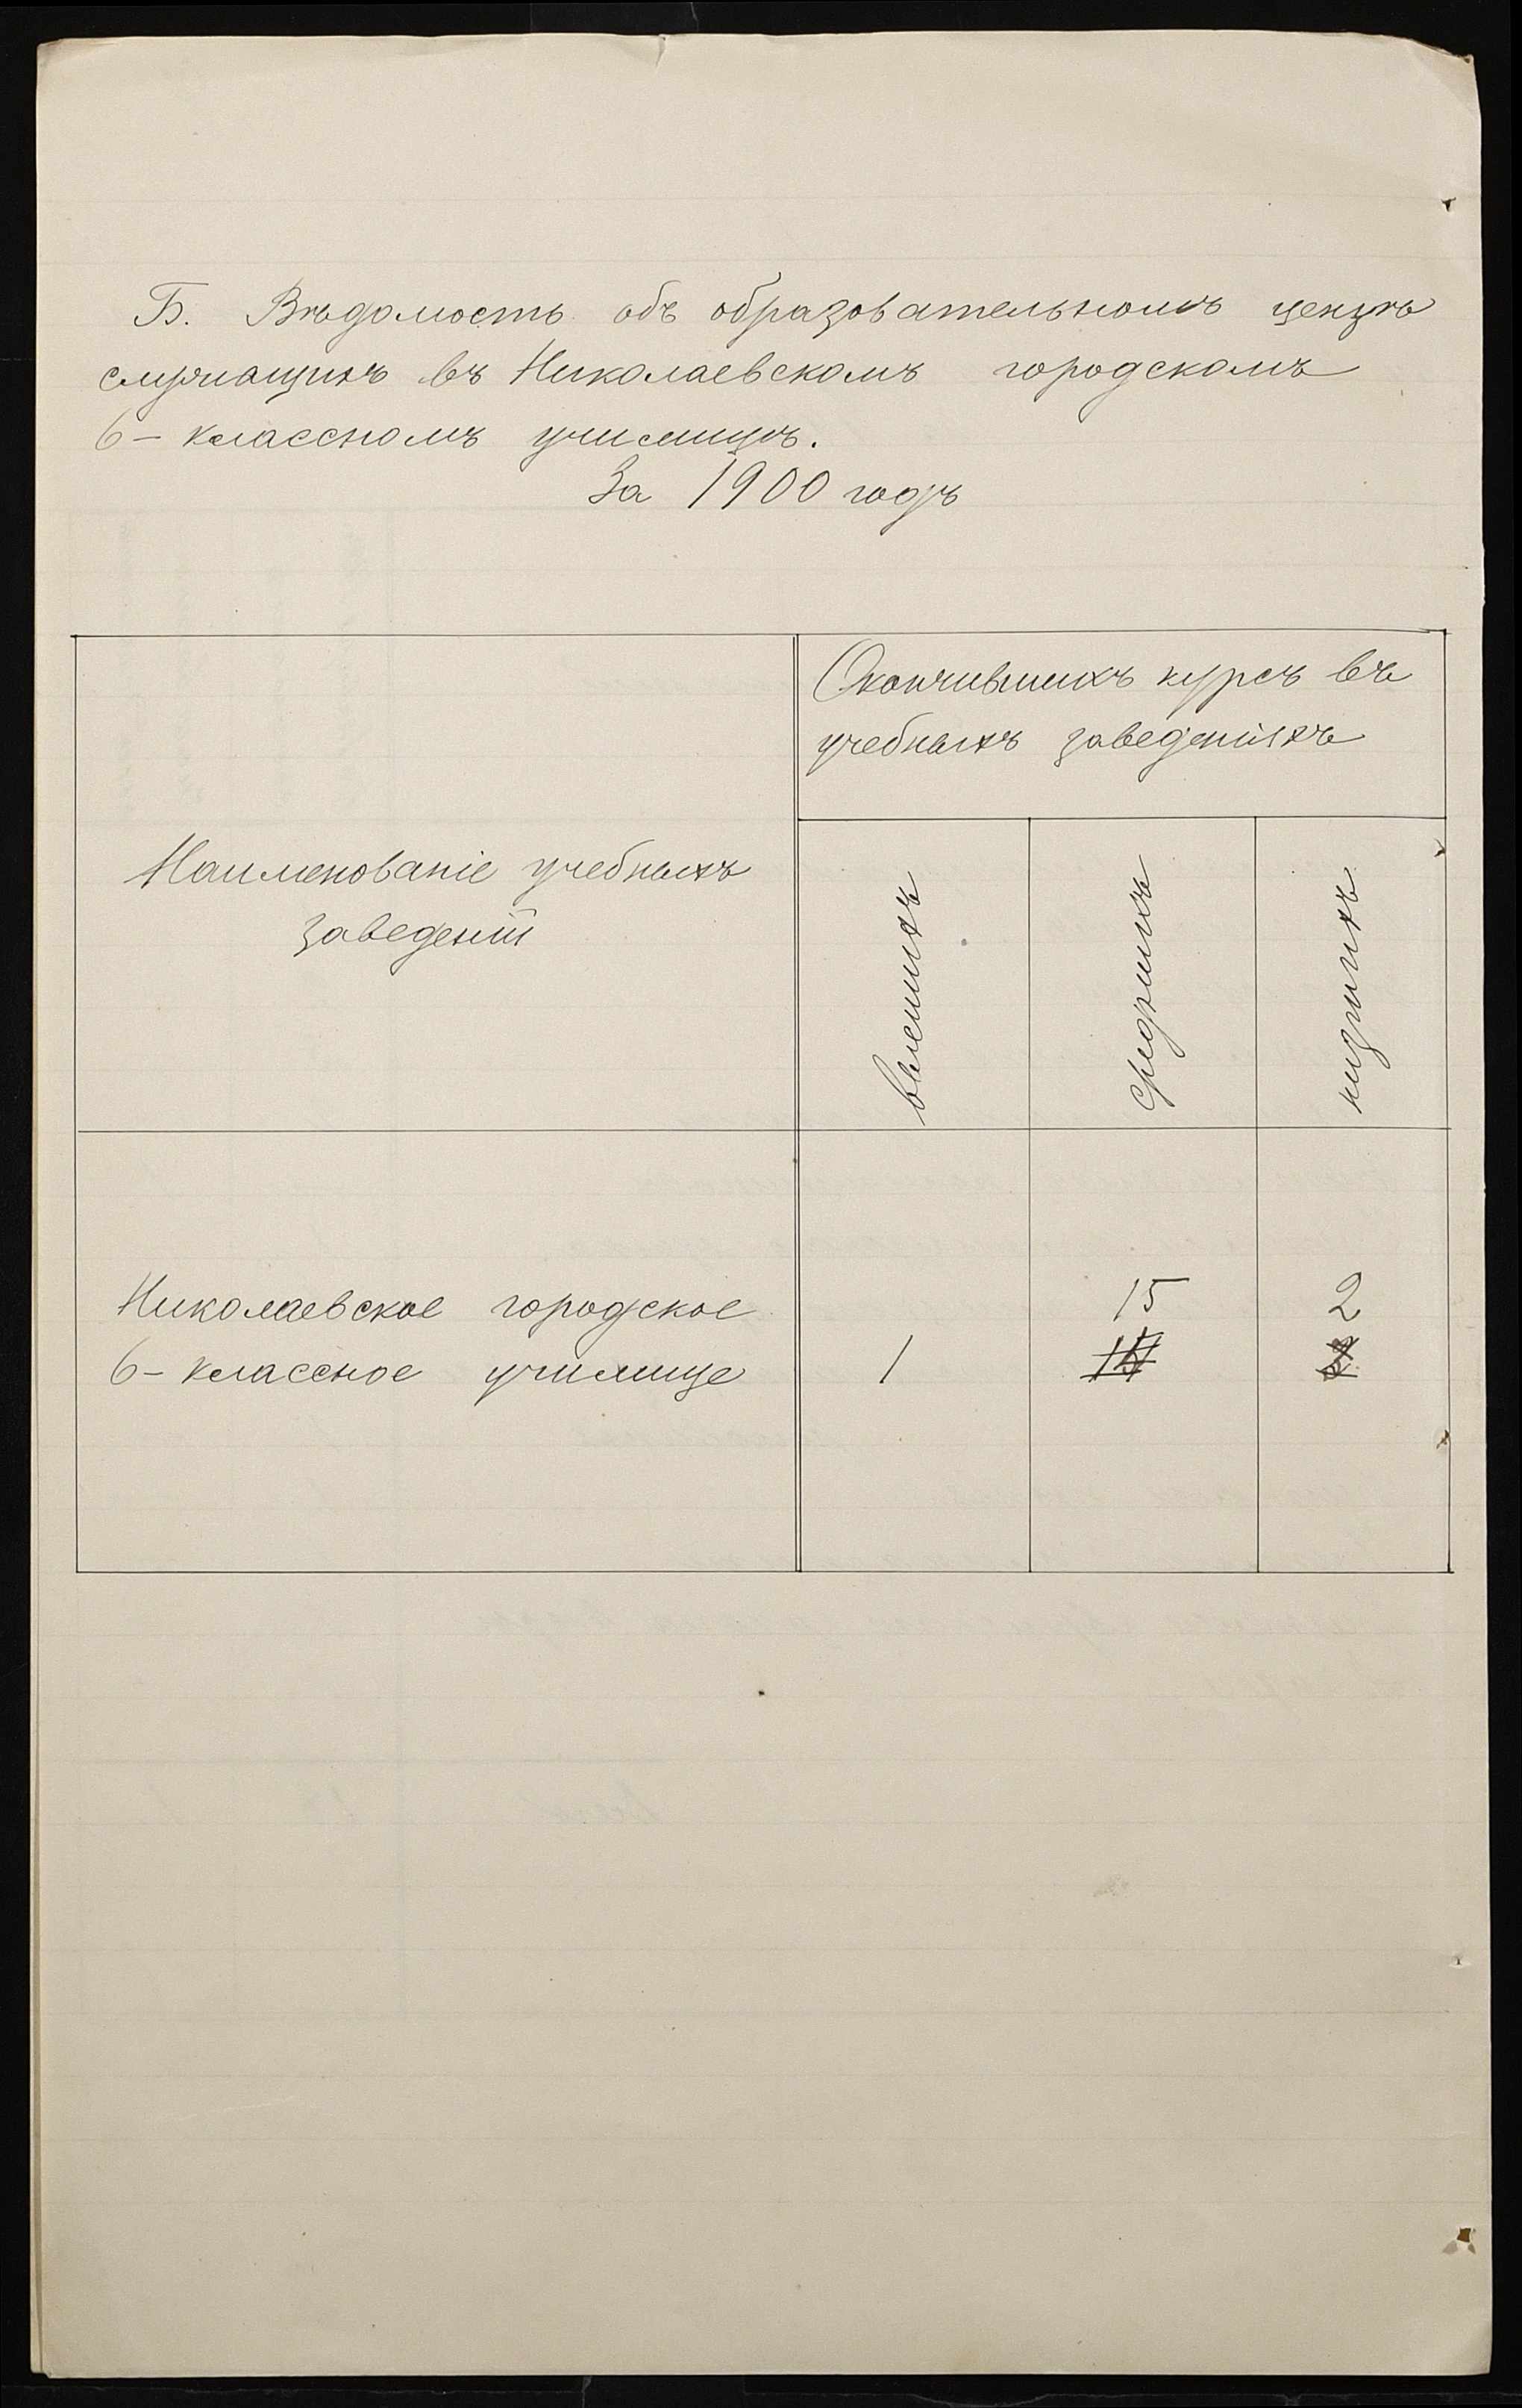 Б. Вѣдомость объ образовательномъ цензѣ
служащихъ въ Николаевскомъ городскомъ
6-классномъ училищѣ.
За 1900 годъ
Окончившихъ курсъ въ
учебныхъ заведеніяхъ
Наименованіе учебныхъ
заведеній
высшихъ
среднихъ
низшихъ
15
2
Николаевское городское
6-классное училище
1